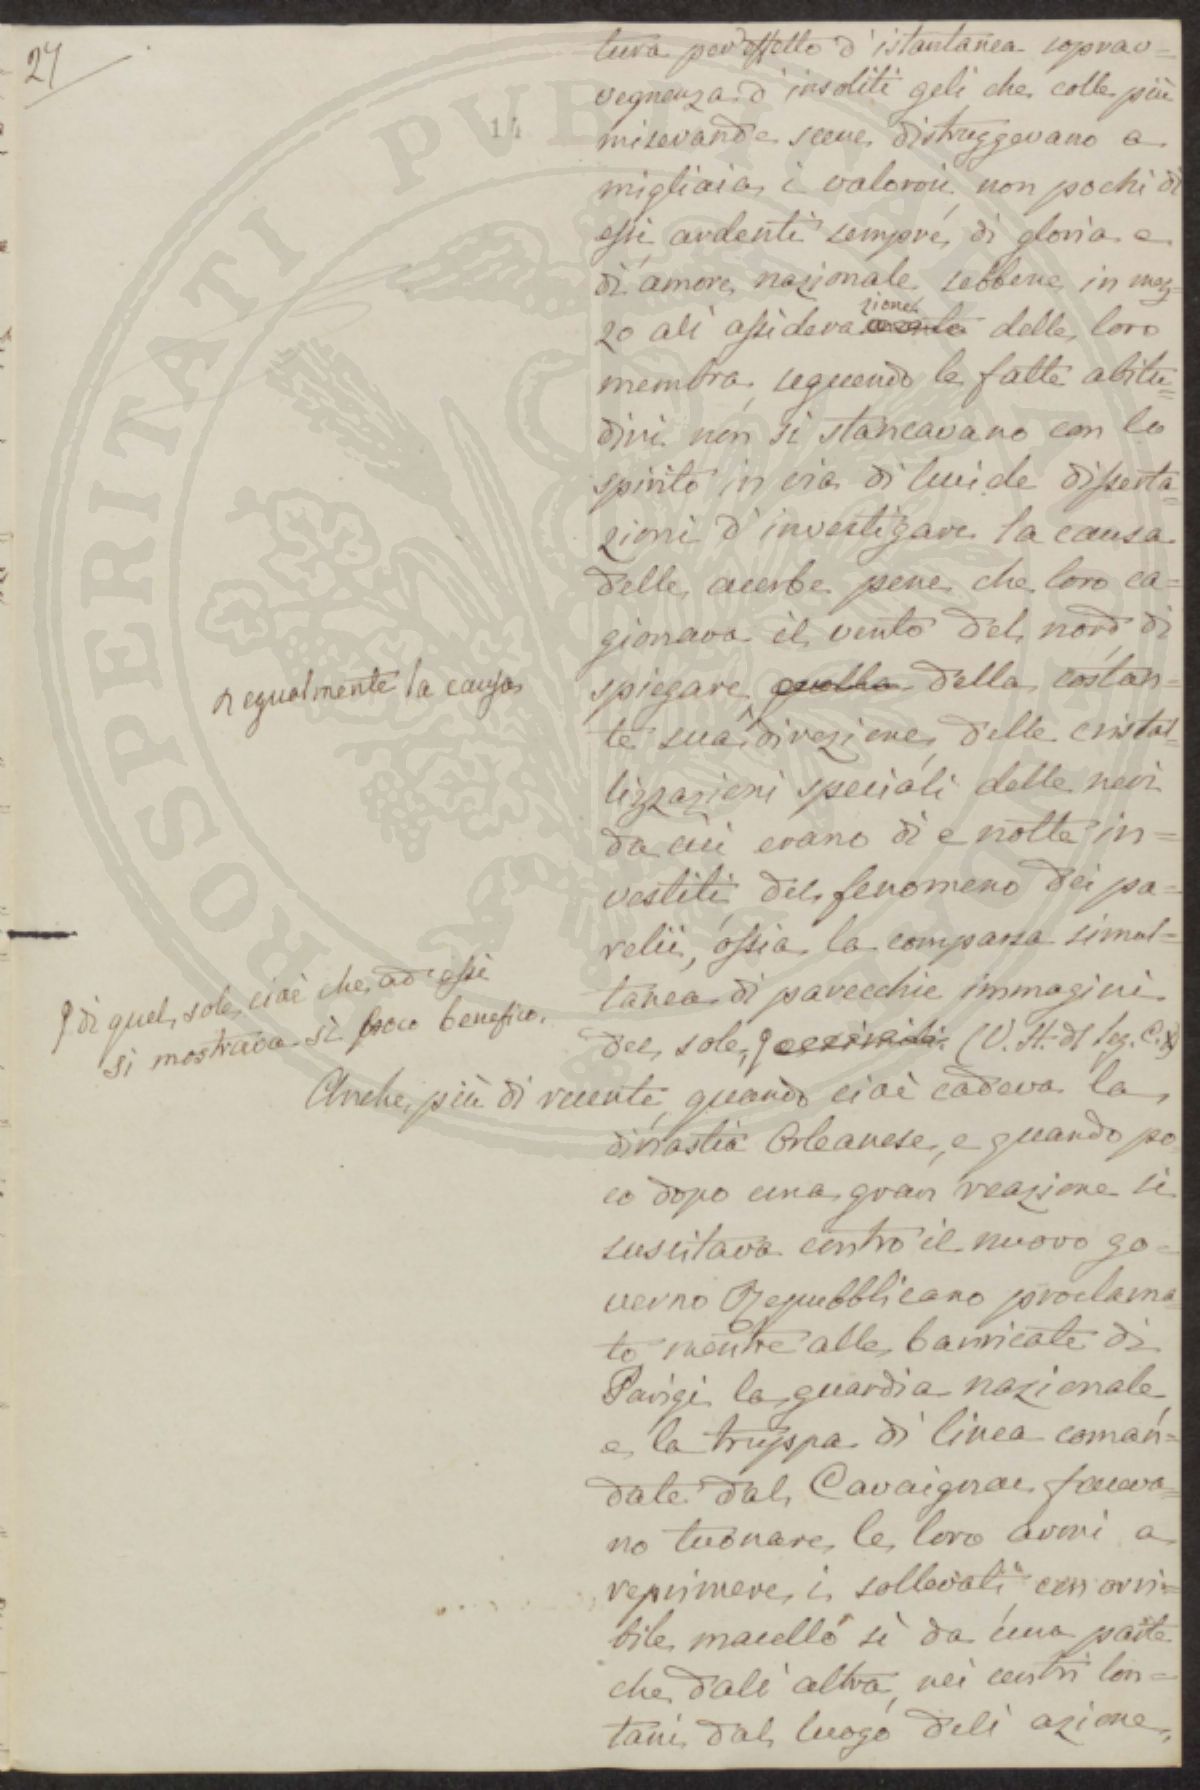 27
14
tura per effetto d'istantanea soprav=
vegnenza d'insoliti geli che colle più
miserande scene distruggevano a
migliaia i valorosi, non pochi di
essi ardenti sempre di gloria e
di amore nazionale sebbene in mez=
zo all'assidera zione delle loro
membra, seguendo le fatte abitu=
dini non si stancavano con lo
spirito in via di lucide disserta=
zioni d'investigare la causa
delle acerbe pene che loro ca=
gionava il vento del nord di
spiegare quella della costan=
te sua direzione, delle cristal=
lizzazioni speciali delle nevi
da cui erano dì e notte in=
vestiti del fenomeno dei pa=
relii, ossia la comparsa simul=
tanea di parecchie immagini
del sole, (V. St. d
egualmente la causa
di quel sole cioè che ad essi
si mostrava sì poco benefico.
Anche più di recente, quando cioè cadeva la
dinastia Orleanese, e quando po
co dopo una gran reazione si
suscitava contro il nuovo go=
verno Repubblicano proclama=
to, mentre alle barricate di
Parigi la guardia nazionale
e la truppa di linea coman=
date dal Cavaignac faceva=
no tuonare le loro armi a
reprimere i sollevati con orri=
bile macello sì da una parte
che dall'altra, nei centri lon=
tani dal luogo dell'azione,
PROSPERITATI PVBLICAE